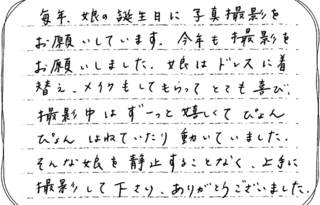 毎年、娘の誕生日に写真撮影を
お願いしています。今年も撮影を
お願いしました。娘はドレスに着
替え、メイクもしてもらってとても喜び、
撮影中はずーっと嬉しくてぴょん
ぴょんはねていたり動いていました。
そんな娘を静止することなく、上手に
撮影して下さり、ありがとうございました。